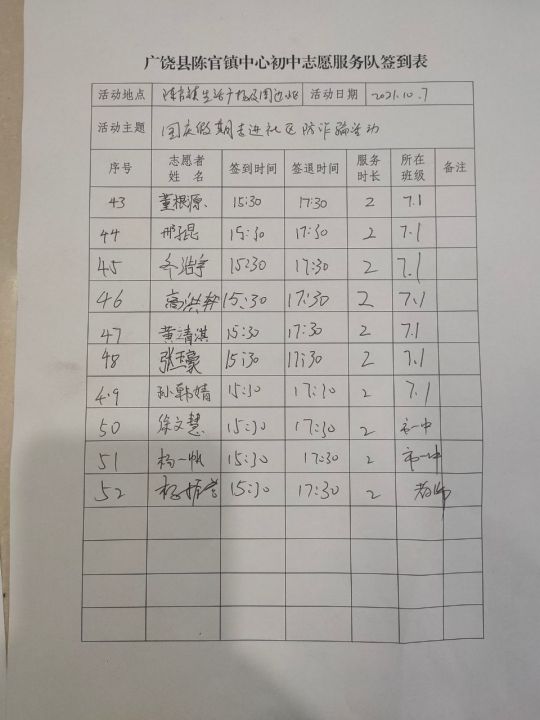 广饶县陈官镇中心初中志愿服务队签到表
活动地点 陈官镇生活广场及周边 活动日期 2021.10.7
活动主题 国庆假期走进社区防诈骗活动
序号 志愿者姓名 签到时间 签退时间 服务时长 所在班级 备注
43 董根源 15:30 17:30 2 7.1
44 邢 15:30 17:30 2 7.1
45 15:30 17:30 2 7.1
46 高洪 15:30 17:30 2 7.1
47 黄清淇 15:30 17:30 2 7.1
48 张豪 15:30 17:30 2 7.1
49 孙韩婧 15:30 17:30 2 7.1
50 徐文慧 15:30 17:30 2 市一中
51 杨一帆 15:30 17:30 2 市一中
52 杨 15:30 17:30 2 教师